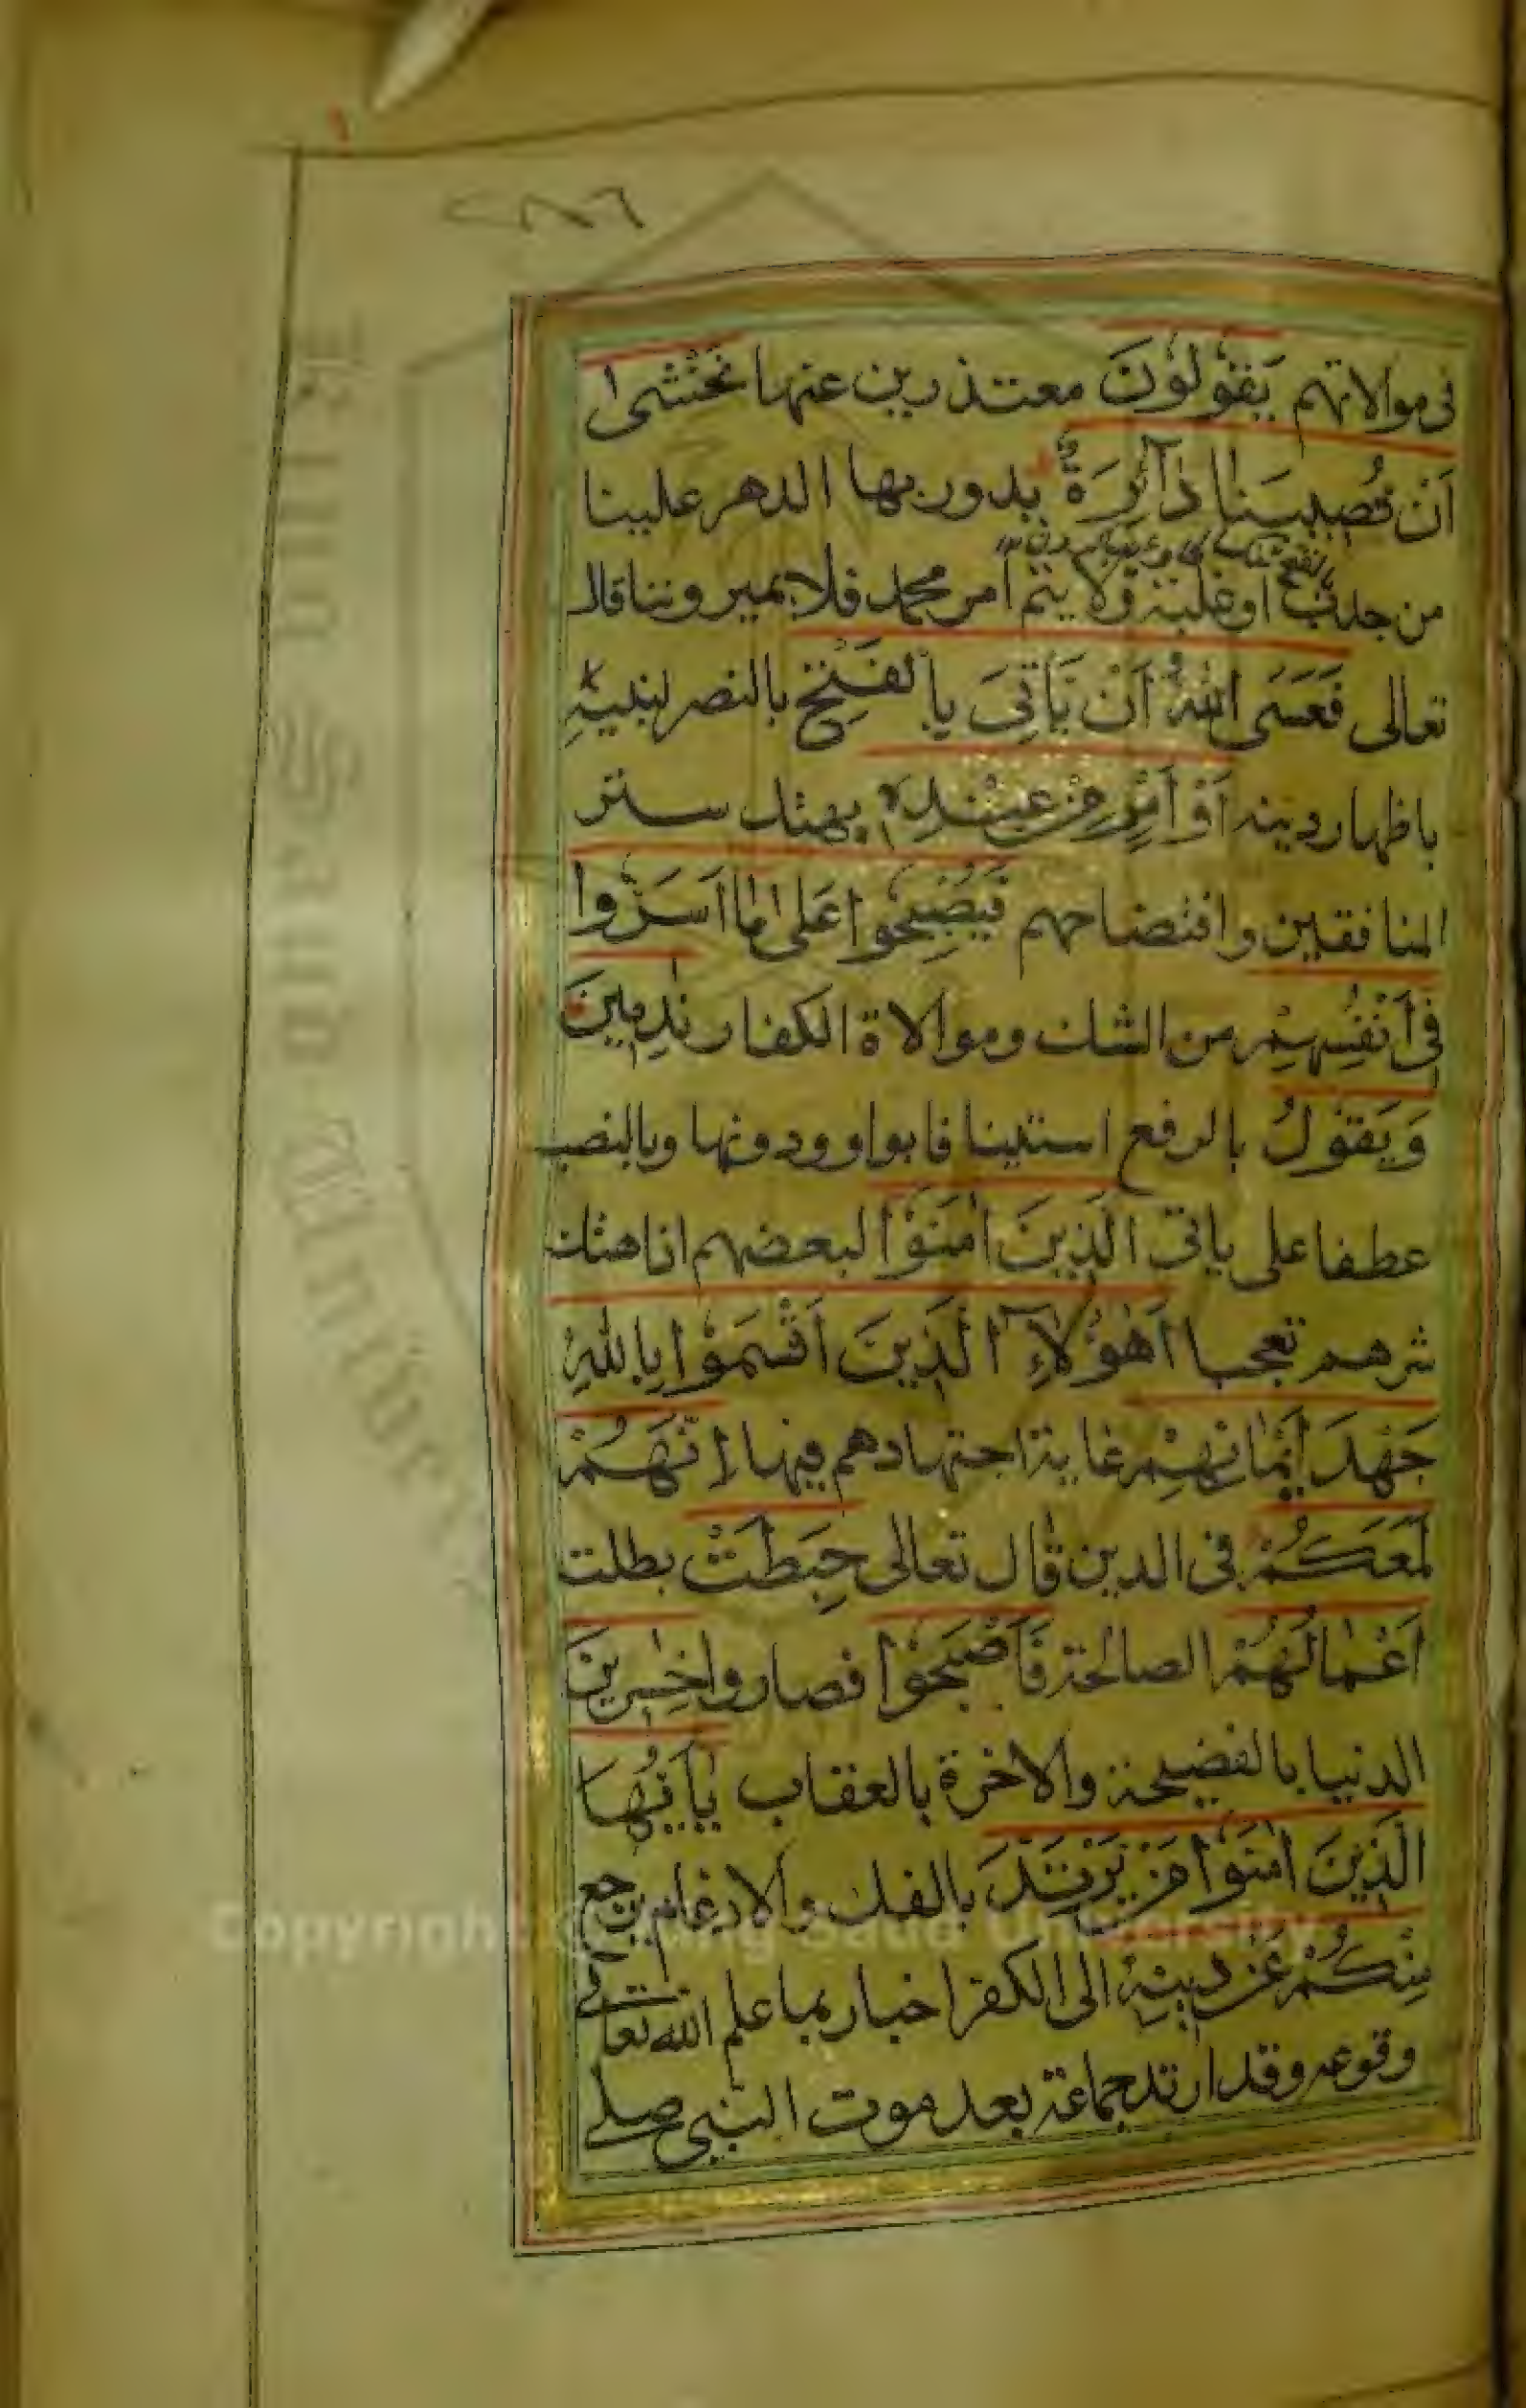 ٢٨٦
فى موالاتهم يَقُوْلُوْنَ معتذرين عنها نَخْشٰى
اَنْ تُصِيْبَنَا دَآئِرَةٌ يدور بها الدهر علينا
من جدب او غلبة ولا يتم امر محمد فلا يميروننا قال
تعالى فَعَسَى اللّٰهُ اَنْ يَّاْتِىَ بِالْفَتْحِ بالنصر لنبيه
باظهار دينه اَوْ اَمْرٍ مِّنْ عِنْدِهٖ بهتك ستر
المنافقين وافتضاحهم فَيُصْبِحُوْا عَلٰى مَا اَسَرُّوْا
فِىْ اَنْفُسِهِمْ من الشك وموالاة الكفار نٰدِمِيْنَ
وَيَقُوْلُ بالرفع استينافا بواو ودونها وبالنصب
عطفا على ياتى الَّذِيْنَ اٰمَنُوْا لبعضهم اذا هتك
سرهم تعجبا اَهٰؤُلَآءِ الَّذِيْنَ اَقْسَمُوْا بِاللّٰهِ
جَهْدَ اَيْمَانِهِمْ غاية اجتهادهم فيها اِنَّهُمْ
لَمَعَكُمْ فى الدين قال تعالى حَبِطَتْ بطلت
اَعْمَالُهُمْ الصالحة فَاَصْبَحُوْا فصاروا خٰسِرِيْنَ
الدنيا بالفضيحة والاخرة بالعقاب يٰٓاَيُّهَا
الَّذِيْنَ اٰمَنُوْا مَنْ يَّرْتَدَّ بالفك والادغام يرجع
مِنْكُمْ عَنْ دِيْنِهٖ الى الكفر اخبار بما علم الله تعالى
وقوعه وقد ارتد جماعة بعد موت النبى صلى
King Saud University
Copyright © King Saud University